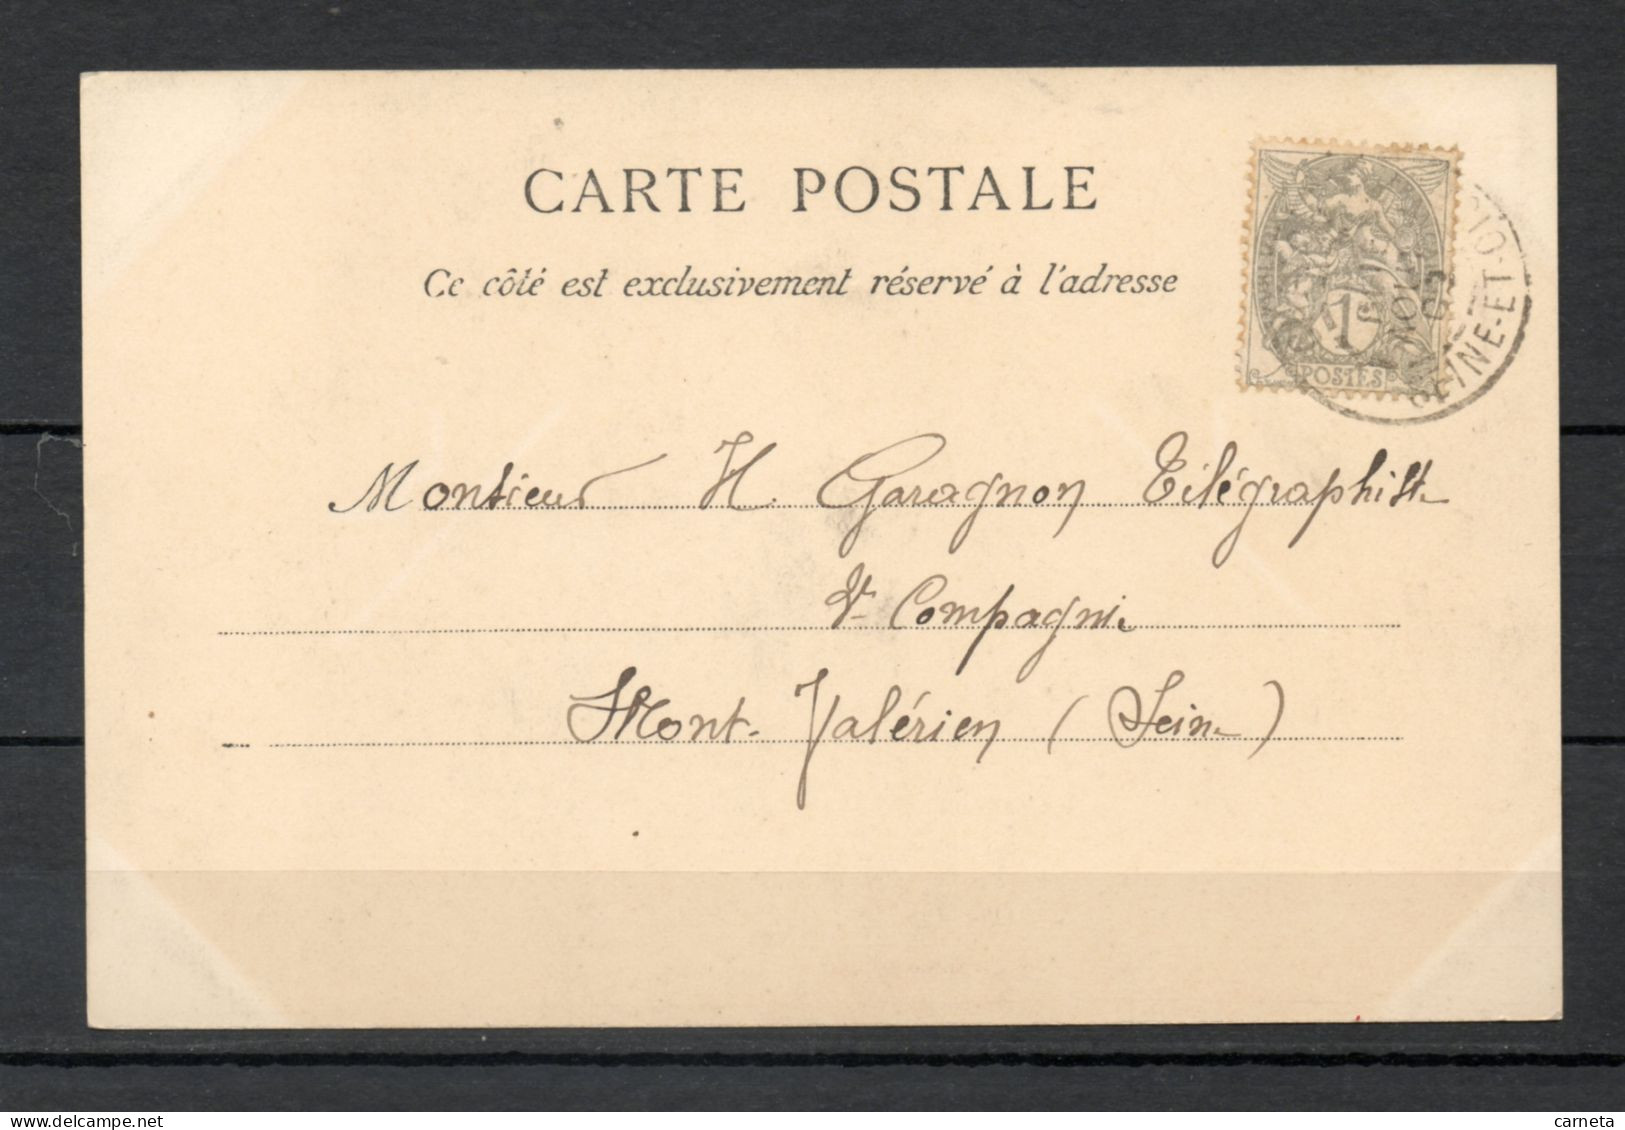 CARTE POSTALE
Ce côté est exclusivement réservé à l'adresse
1
POSTES
NOV
SEINE-ET-OIS
Monsieur H. Garagnon Télégraphiste
Compagnie
Mont-Valérien (Seine)
carneta